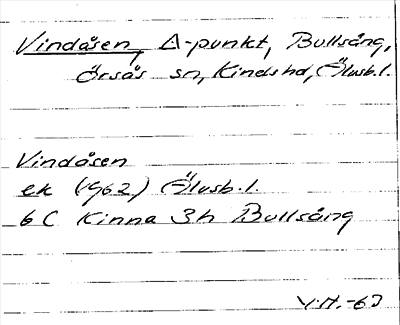 Vindåsen, Δ-punkt, Bullsång,
Örsås sn, Kinds hd, Älvsb. l.
Vindåsen
ek (1962) Älvsb. l.
6 C Kinna 3h Bullsång
V.H. -63